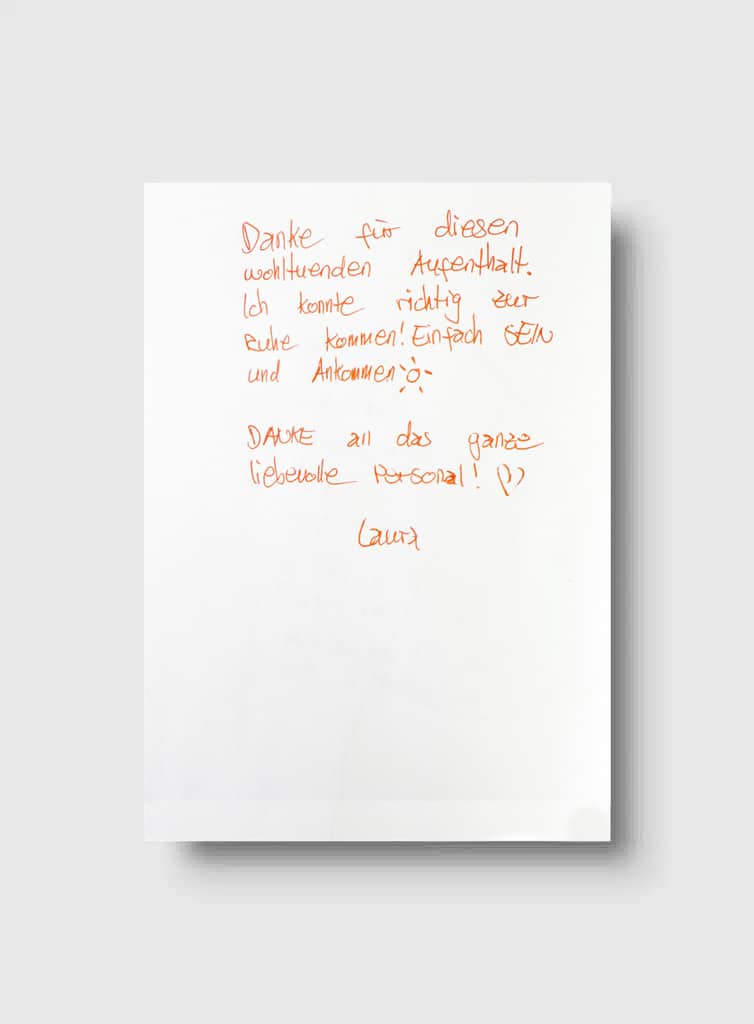 Danke für diesen
wohltuenden Aufenthalt.
Ich konnte richtig zur
Ruhe kommen! Einfach SEIN
und Ankommen
DANKE an das ganze
liebevolle Personal!
Laura